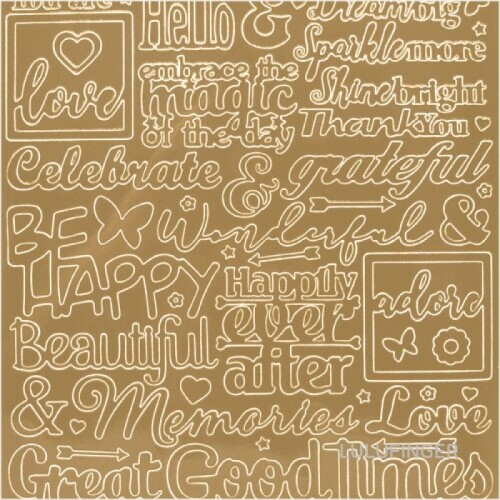 You are
Hello
&
Dream big
Sparkle more
love
embrace the
magic
of the day
Shine bright
Thank You
Celebrate
&
grateful
BE
HAPPY
Wonderful
&
Happily
ever
after
adore
Beautiful
&
Memories
Love
LULUFINGER
Great Good Times